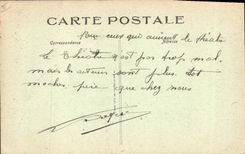 CARTE POSTALE
Pour ceux qui aiment le théâtre
Correspondance Adresse
Le Théâtre n'est pas trop mal,
mais les acteurs sont plus tot
moches, pire que chez nous